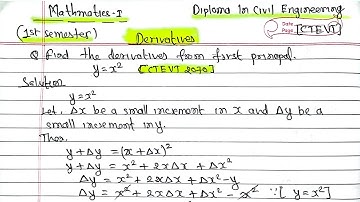 Mathmatics-I Diploma in Civil Engineering
(1st semester) Derivatives Date Page [CTEVT]
Q. find the derivatives from first principal.
y=x² [CTEVT 2070]
Solution
y=x²
Let, Δx be a small increment in x and Δy be a
small increment in y.
Then,
y+Δy = (x+Δx)²
y+Δy = x²+2xΔx + Δx²
Δy = x²+2xΔx+Δx²-y
Δy = x²+2xΔx+Δx²-x² ∵[y=x²]